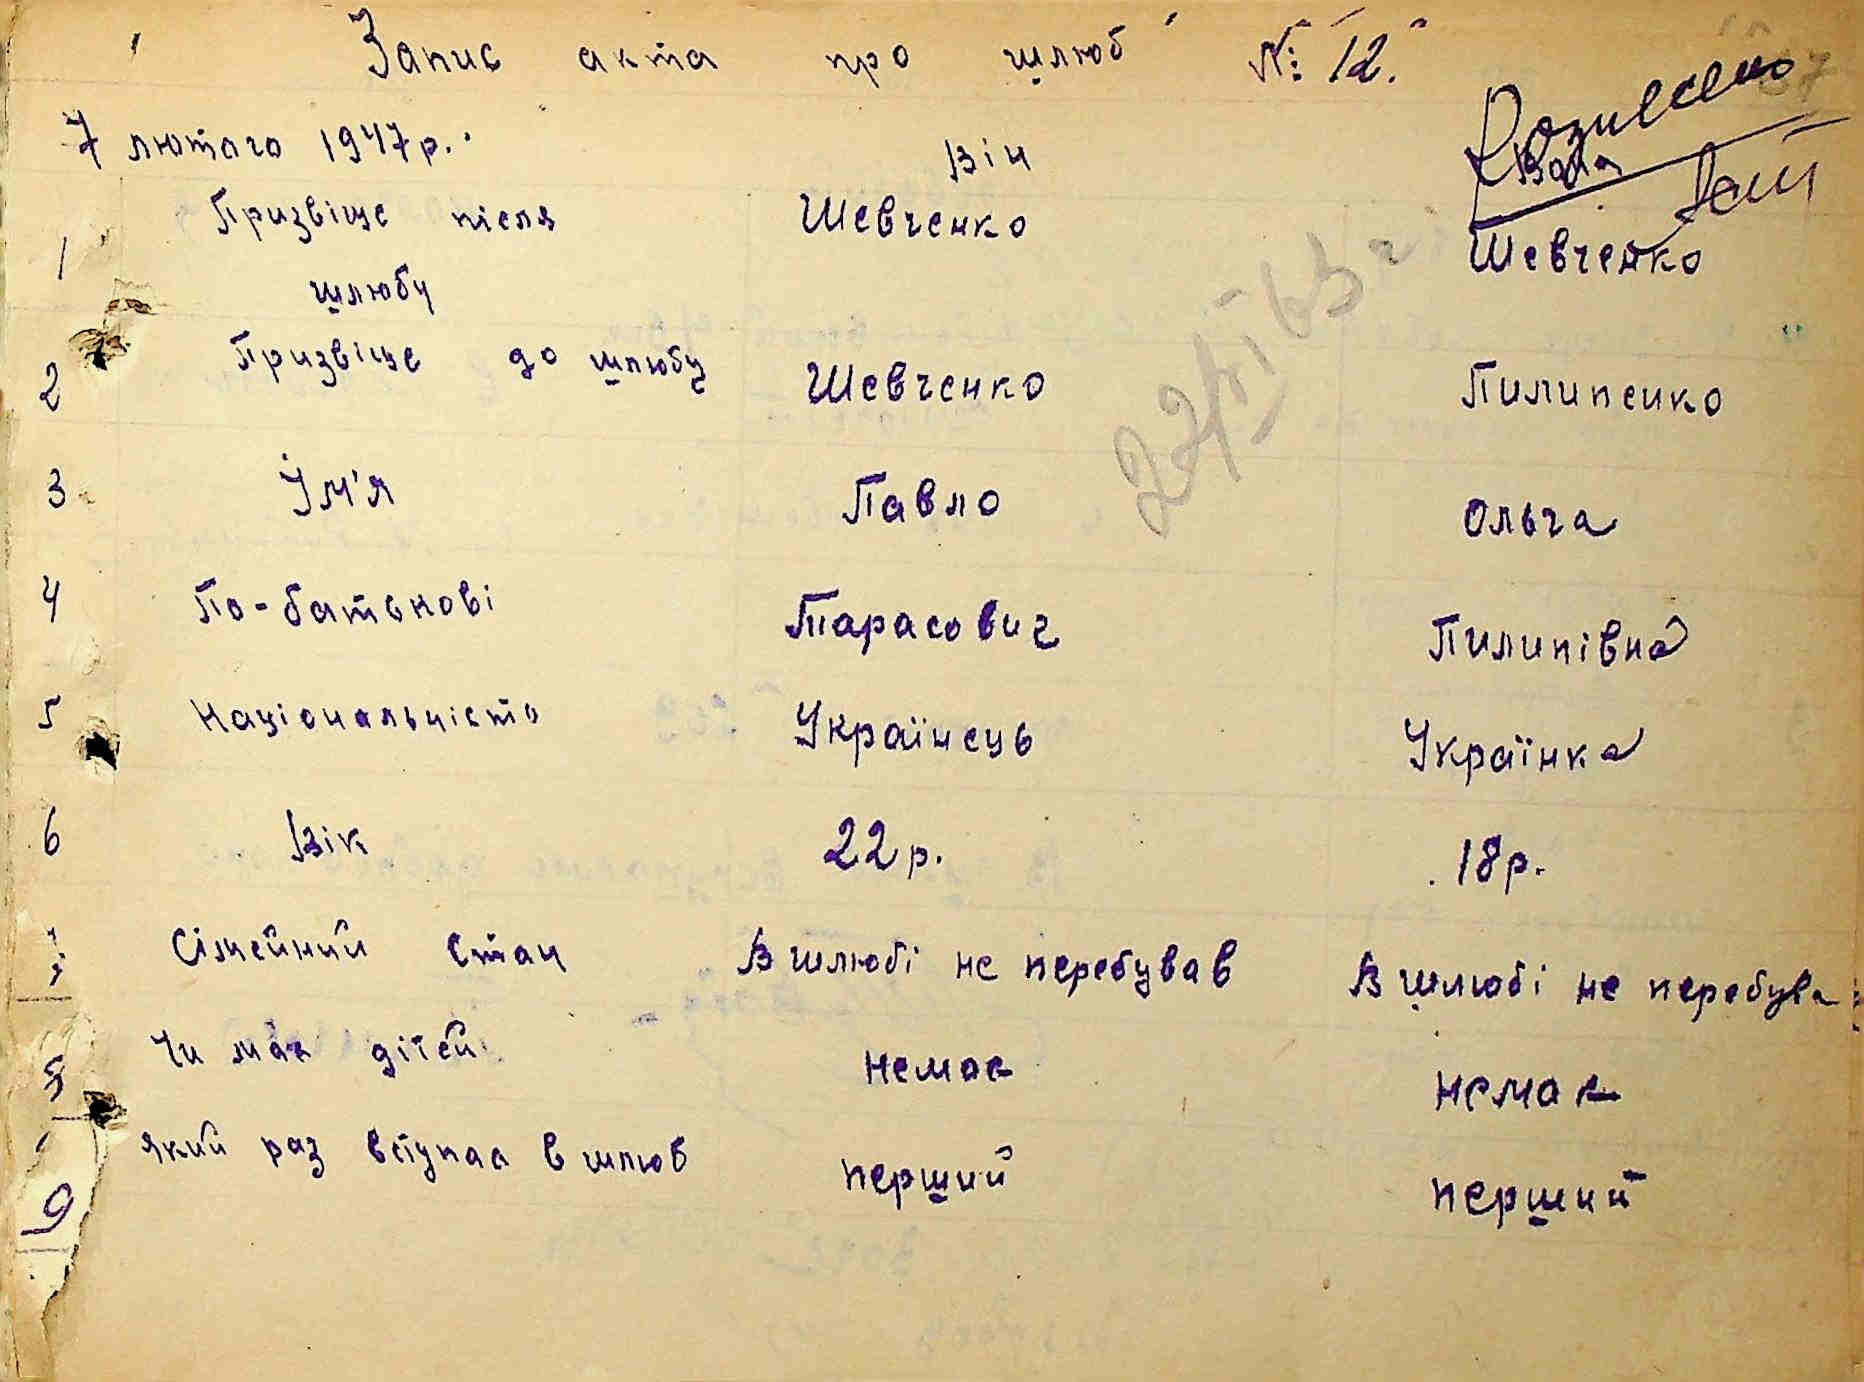 Запис акта про шлюб № 12.
7 лютого 1947 р. Він Вона
1 Призвіще після Шевченко Шевченко
шлюбу
2 Призвіще до шлюбу Шевченко Пилипенко
3 Їм'я Павло Ольга
4 По-батькові Тарасович Пилипівна
5 Національність Українець Українка
6 Вік 22 р. 18 р.
7 Сімейний стан В шлюбі не перебував В шлюбі не перебува
Чи має дітей немає немає
9 який раз вступає в шлюб перший перший